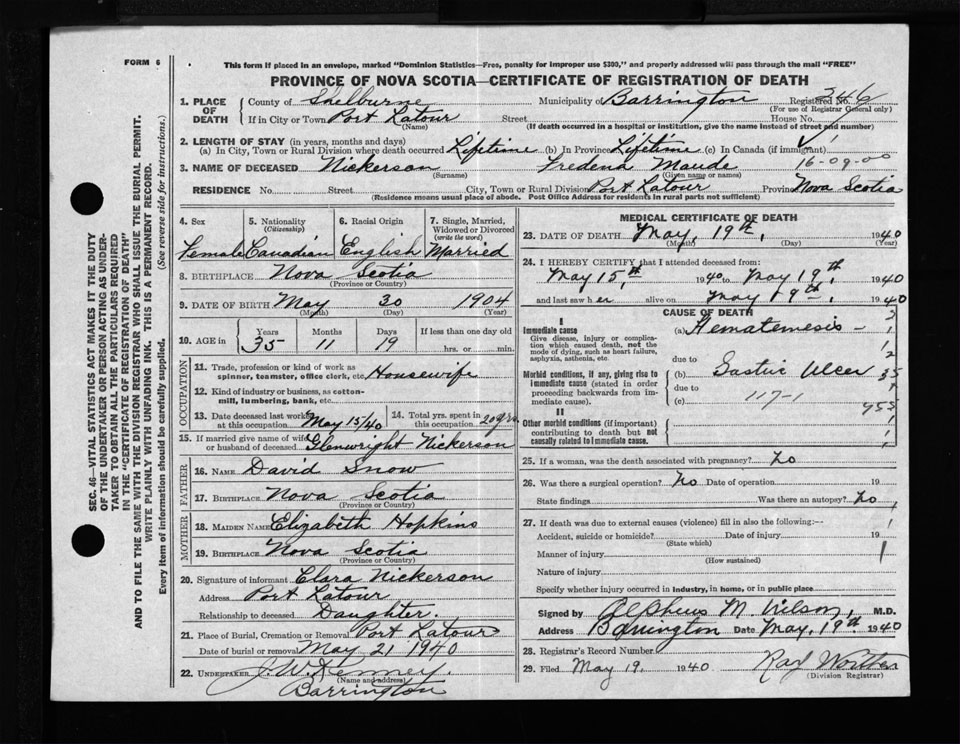 FORM 6
This form if placed in an envelope, marked "Dominion Statistics—Free, penalty for improper use $300," and properly addressed will pass through the mail "FREE"
PROVINCE OF NOVA SCOTIA—CERTIFICATE OF REGISTRATION OF DEATH
1. PLACE OF DEATH County of Shelburne Municipality of Barrington Registered No. 346
(For use of Registrar General only)
If in City or Town Port Latour Street House No.
(Name) (If death occurred in a hospital or institution, give the name instead of street and number)
2. LENGTH OF STAY (in years, months and days)
(a) In City, Town or Rural Division where death occurred Lifetime (b) In Province Lifetime (c) In Canada (if immigrant)
16-09-00
3. NAME OF DECEASED Nickerson Fredena Maude
(Surname) (Given name or names)
RESIDENCE No. Street City, Town or Rural Division Port Latour Province Nova Scotia
(Residence means usual place of abode. Post Office Address for residents in rural parts not sufficient)
4. Sex 5. Nationality (Citizenship) 6. Racial Origin 7. Single, Married, Widowed or Divorced (write the word)
Female Canadian English Married
8. BIRTHPLACE Nova Scotia
(Province or Country)
9. DATE OF BIRTH May 30 1904
(Month) (Day) (Year)
10. AGE in Years Months Days If less than one day old
35 11 19 hrs. or min.
OCCUPATION
11. Trade, profession or kind of work as spinner, teamster, office clerk, etc. Housewife
12. Kind of industry or business, as cotton-mill, lumbering, bank, etc.
13. Date deceased last worked at this occupation May 15/40 14. Total yrs. spent in this occupation 20 yrs
15. If married give name of wife or husband of deceased Glenwright Nickerson
FATHER
16. NAME David Snow
17. BIRTHPLACE Nova Scotia
(Province or Country)
MOTHER
18. MAIDEN NAME Elizabeth Hopkins
19. BIRTHPLACE Nova Scotia
(Province or Country)
20. Signature of informant Clara Nickerson
Address Port Latour
Relationship to deceased Daughter.
21. Place of Burial, Cremation or Removal Port Latour
Date of burial or removal May 21 1940
22. UNDERTAKER J. W. Kenney
(Name and address)
Barrington
MEDICAL CERTIFICATE OF DEATH
23. DATE OF DEATH May, 19th, 1940
(Month) (Day) (Year)
24. I HEREBY CERTIFY that I attended deceased from:
May 15th, 1940 to May 19th, 1940
and last saw her alive on May 19th, 1940
CAUSE OF DEATH
I
Immediate cause (a) Hematemesis
Give disease, injury or complication which caused death, not the mode of dying, such as heart failure, asphyxia, asthenia, etc.
due to
Morbid conditions, if any, giving rise to immediate cause (stated in order proceeding backwards from immediate cause). (b) Gastric Ulcer
due to
(c) 117-1
II
Other morbid conditions (if important) contributing to death but not causally related to immediate cause.
25. If a woman, was the death associated with pregnancy? No
26. Was there a surgical operation? No Date of operation 19
State findings Was there an autopsy? No
27. If death was due to external causes (violence) fill in also the following:—
Accident, suicide or homicide? Date of injury 19
(State which)
Manner of injury
(How sustained)
Nature of injury
Specify whether injury occurred in industry, in home, or in public place
Signed by M. Wilson, M.D.
Address Barrington Date May, 19th 1940
28. Registrar's Record Number
29. Filed May 19. 1940 Ray
(Division Registrar)
SEC. 46—VITAL STATISTICS ACT MAKES IT THE DUTY
OF THE UNDERTAKER OR PERSON ACTING AS UNDER-
TAKER TO OBTAIN ALL THE PARTICULARS REQUIRED
IN THE "CERTIFICATE OF REGISTRATION OF DEATH"
AND TO FILE THE SAME WITH THE DIVISION REGISTRAR WHO SHALL ISSUE THE BURIAL PERMIT.
WRITE PLAINLY WITH UNFADING INK. THIS IS A PERMANENT RECORD.
Every item of information should be carefully supplied. (See reverse side for instructions.)